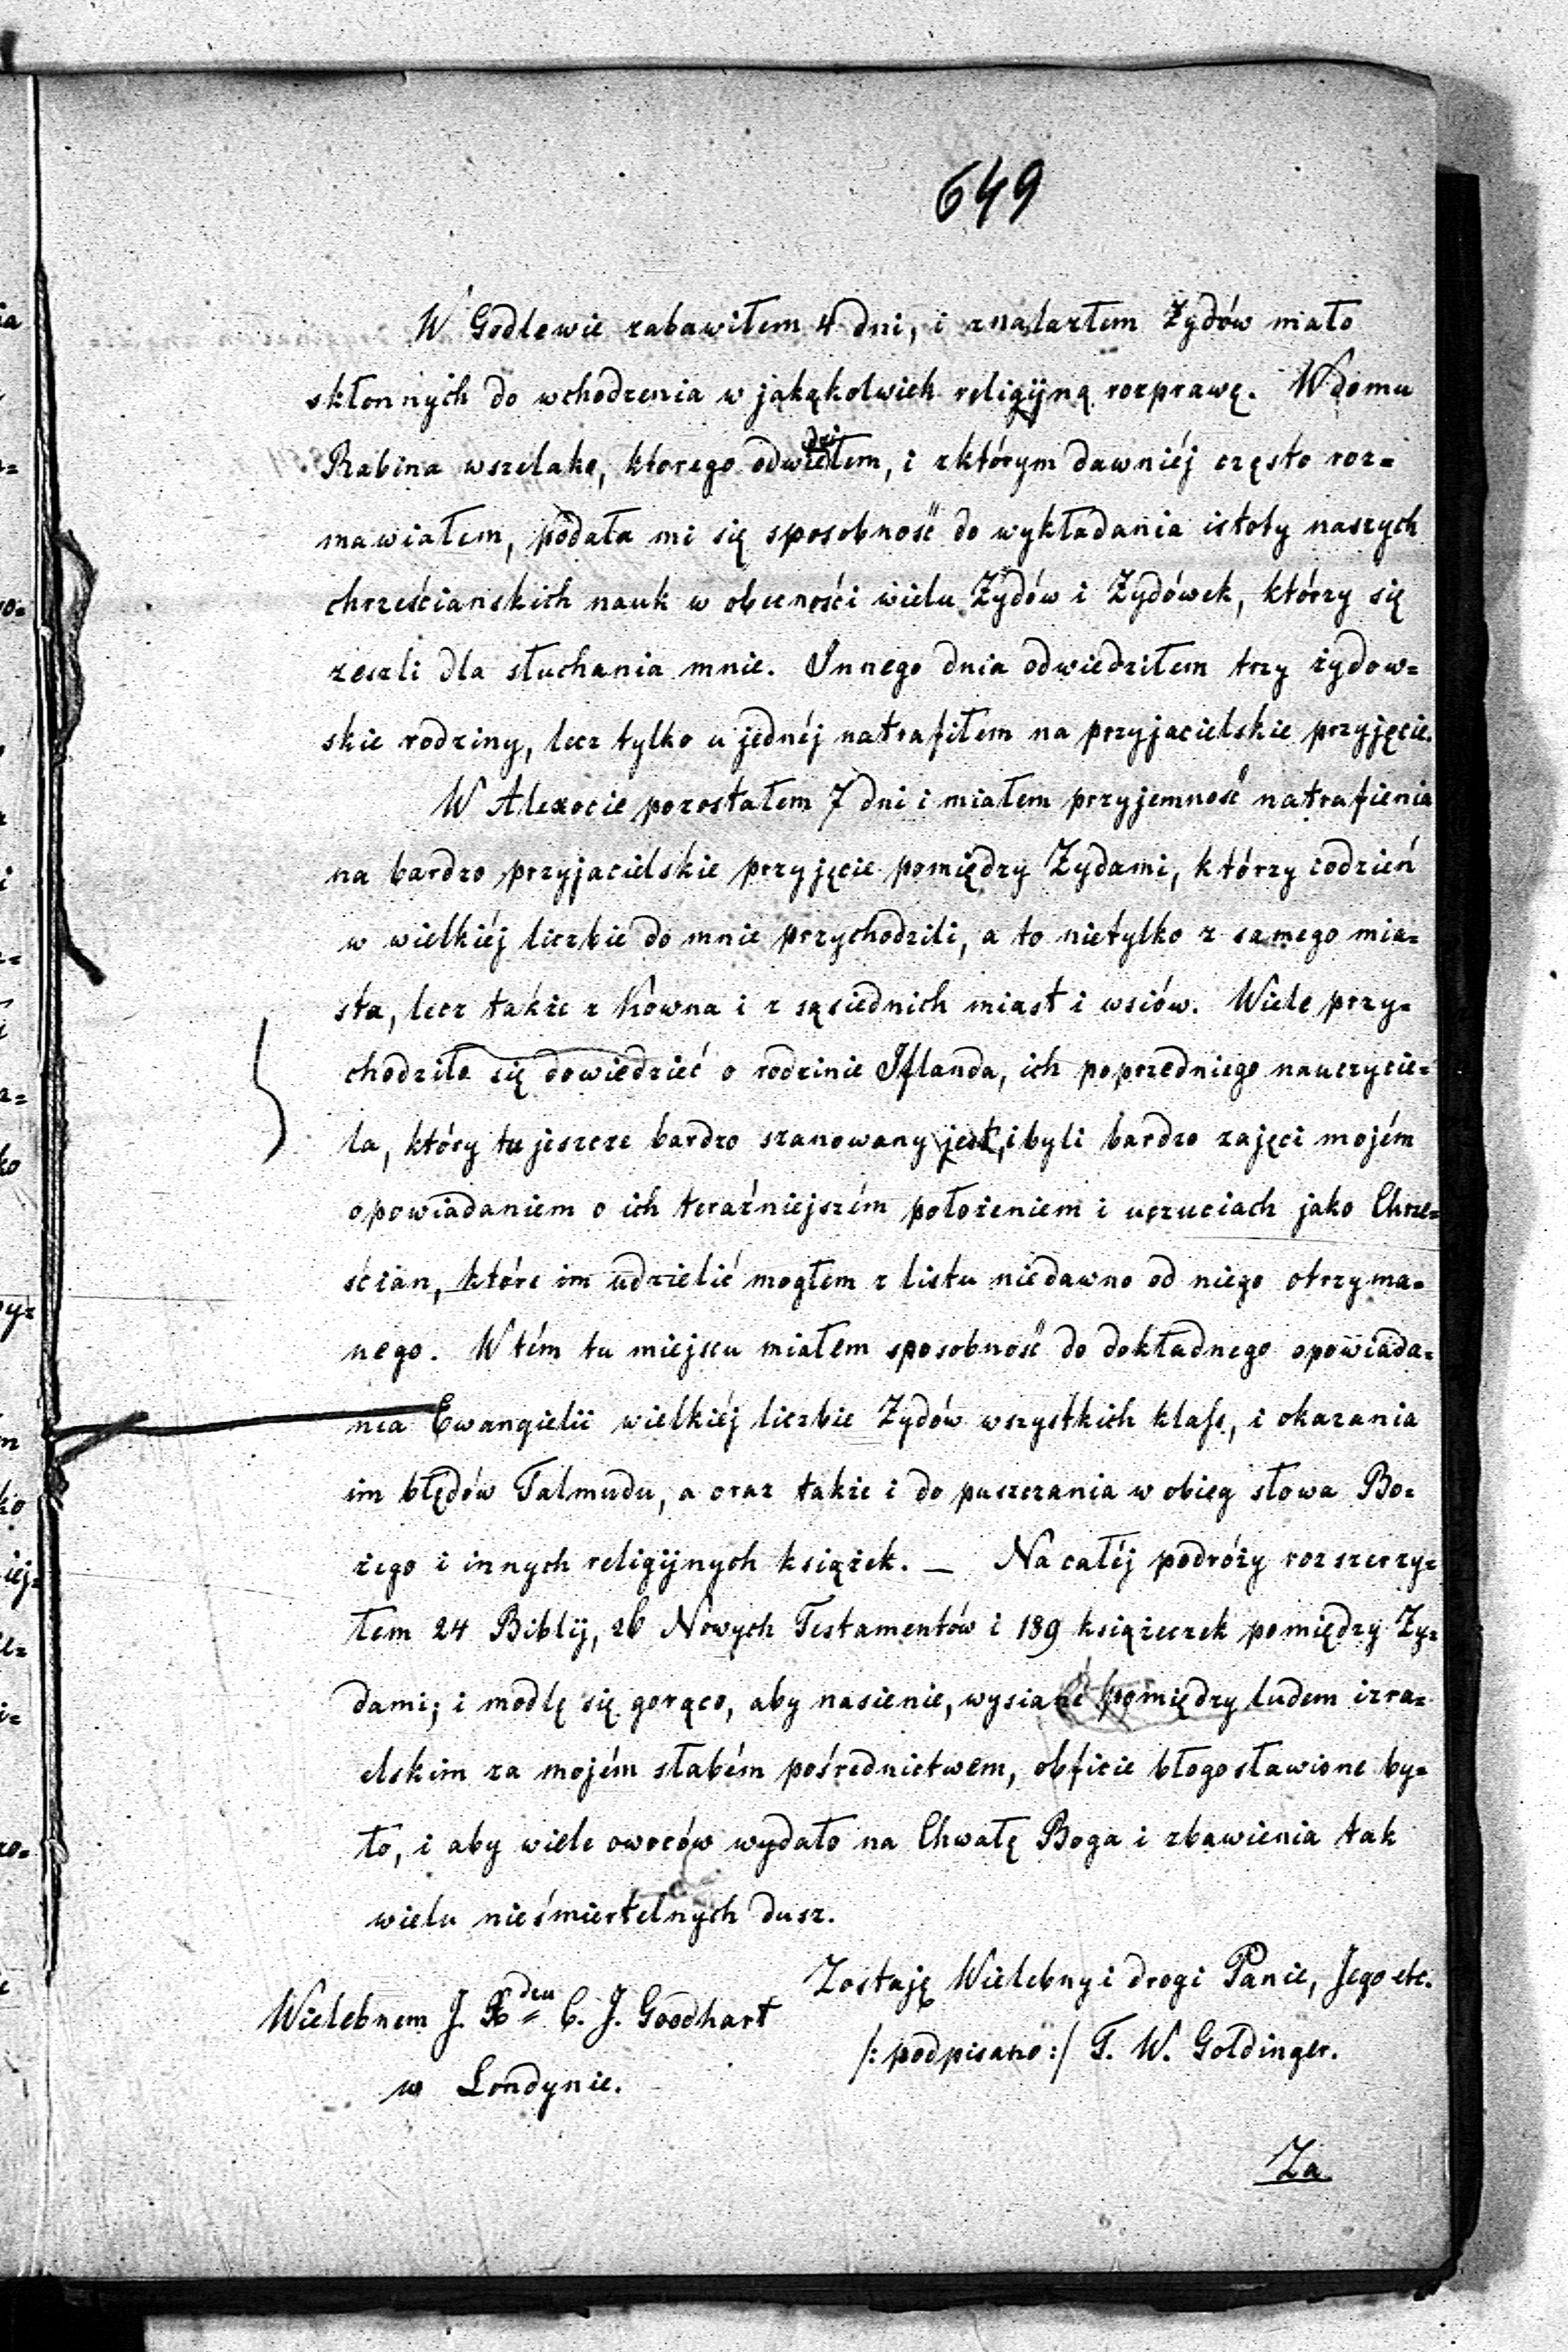 649
W Godlewie zabawiłem 4 dni, i znalazłem Żydów mało
skłonnych do wchodzenia w jakąkolwiek religijną rozprawę. W domu
Rabina wszelako, ktorego odwiedziłem, i z którym dawniéj często roz=
mawiałem, podała mi się sposobność do wykładania istoty naszych
chrześcianskich nauk w obecności wielu Żydów i Żydówek, którzy się
zeszli dla słuchania mnie. Innego dnia odwiedziłem trzy żydow=
skie rodziny, lecz tylko u jednéj natrafiłem na przyjacielskie przyjęcie.
W Alexocie pozostałem 7 dni i miałem przyjemność natrafienia
na bardzo przyjacielskie przyjęcie pomiędzy Żydami, którzy codzień
w wielkiéj liczbie do mnie przychodzili, a to nietylko z samego mia=
sta, lecz także z Kowna i z sąsiednich miast i wsiów. Wiele przy=
chodziło się dowiedzieć o rodzinie Iflanda, ich poprzedniego nauczycie=
la, który tu jeszcze bardzo szanowany jest, i byli bardzo zajęci mojém
opowiadaniem o ich teraźniejszém położeniem i uczuciach jako Chrze=
ścian, które im udzielić mogłem z listu niedawno od niego otrzyma=
nego. W tém tu miejscu miałem sposobność do dokładnego opowiada=
nia Ewangielii wielkiéj liczbie Żydów wszystkich klass, i okazania
im błędów Talmudu, a oraz także i do puszczania w obieg słowa Bo=
żego i innych religijnych książek. — Na całéj podróży rozszerzy=
łem 24 Biblij, 26 Nowych Testamentów i 189 książeczek pomiędzy Ży=
dami; i modlę się gorąco, aby nasienie, wysiane pomiędzy ludem izra=
elskim za mojém słabém pośrednictwem, obficie błogosławione by=
ło, i aby wiele owoców wydało na Chwałę Boga i zbawienia tak
wielu nieśmiertelnych dusz.
Zostaję Wielebny i drogi Panie, Jego etc.
Wielebnem J. Xdzu C. J. Goodhart
/: podpisano :/ T. W. Goldinger.
w Londynie.
Za